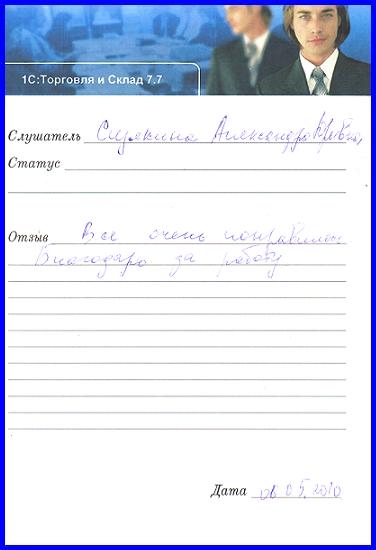 1С:Торговля и Склад 7.7
Слушатель Александра
Статус
Отзыв Все очень понравилось
Благодарю за работу
Дата 06 05. 2010